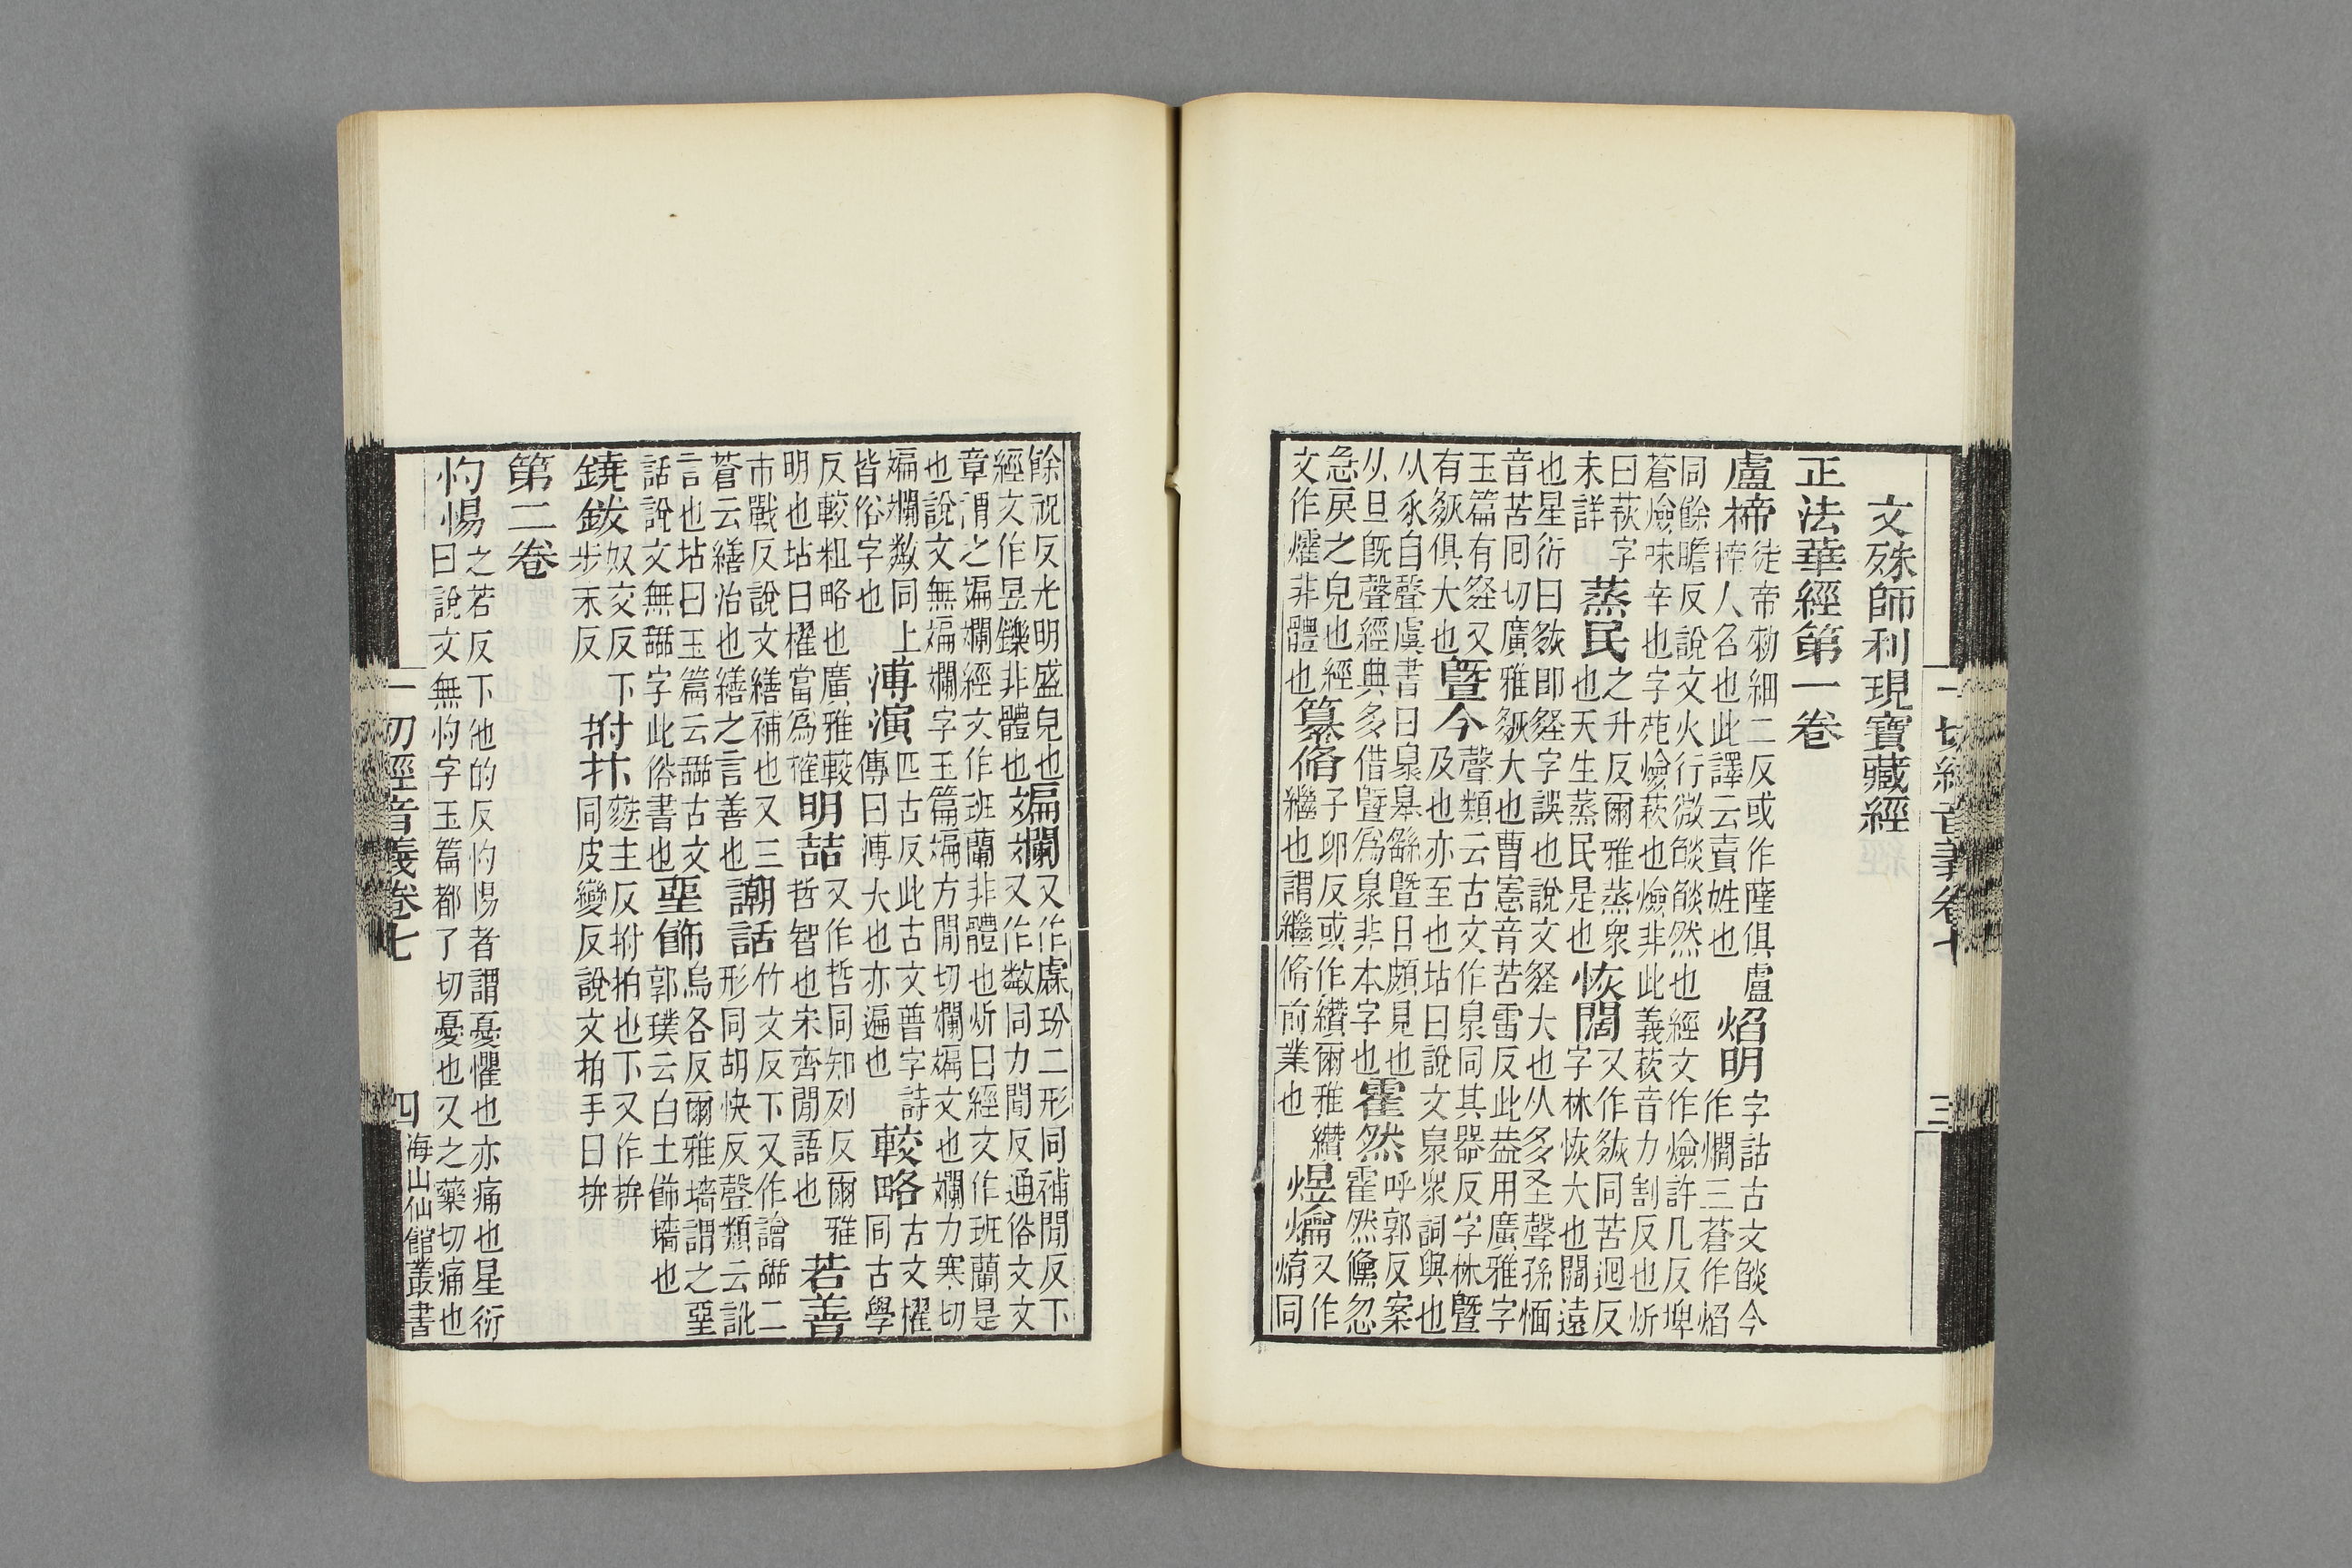 一切經音義卷七 三
文殊師利現寶藏經
正法華經第一卷
盧㮛
徒帝勑細二反或作薩俱盧
㮛人名也此譯云賣姓也
焰明
字詁古文㷔今
作爓三蒼作焰
同餘瞻反說文火行微㷔㷔然也經文作爁許几反埤
蒼爁味辛也字苑爁萩也爁非此義萩音力割反也炘
曰萩字
未詳
蒸民
之升反爾雅蒸衆
也天生蒸民是也
恢闊
又作同苦迴反
字林恢大也闊遠
也星衍曰即字誤也說文大也从多圣聲孫愐
音苦囘切廣雅大也曹憲音苦雷反此葢用廣雅字
玉篇有又
有俱大也
暨今
聲類云古文作臮同其器反字林暨
及也亦至也坫曰說文臮衆詞與也
从㐺自聲虞書曰臮皋繇暨日頗見也
从旦旣聲經典多借暨爲臮非本字也
霍然
呼郭反案
霍然儵忽
急戾之皃也經
文作㸌非體也
纂脩
子卵反或作纘爾雅纘
繼也謂繼脩前業也
煜爚
又作
焴同
餘祝反光明盛皃也
經文作昱鑠非體也
斒斕
又作虨玢二形同補閒反下
又作同力閒反通俗文文
章謂之斒斕經文作班蘭非體也炘曰經文作班蘭是
也說文無斒斕字玉篇斒方閒切斕斒文也斕力寒切
斒斕同上
皆俗字也
溥演
匹古反此古文普字詩
傳曰溥大也亦遍也
較略
古文㩁
同古學
反較粗略也廣雅較
明也坫曰㩁當爲榷
明喆
又作哲同知列反爾雅
哲智也宋齊閒語也
若善
市戰反說文繕補也又三
蒼云繕治也繕之言善也
話
竹交反下又作譮䛡二
形同胡快反聲類云訛
言也坫曰玉篇云䛡古文
話說文無䛡字此俗書也
堊飾
烏各反爾雅墻謂之堊
郭璞云白土飾墻也
鐃鈸
奴交反下
步末反
拊抃
麩主反拊拍也下又作拚
同皮變反說文拊手曰拚
第二卷
忉惕
之若反下他的反忉惕者謂憂懼也亦痛也星衍
曰說文無字玉篇都了切憂也又之藥切痛也
一切經音義卷七 四 海山仙館叢書